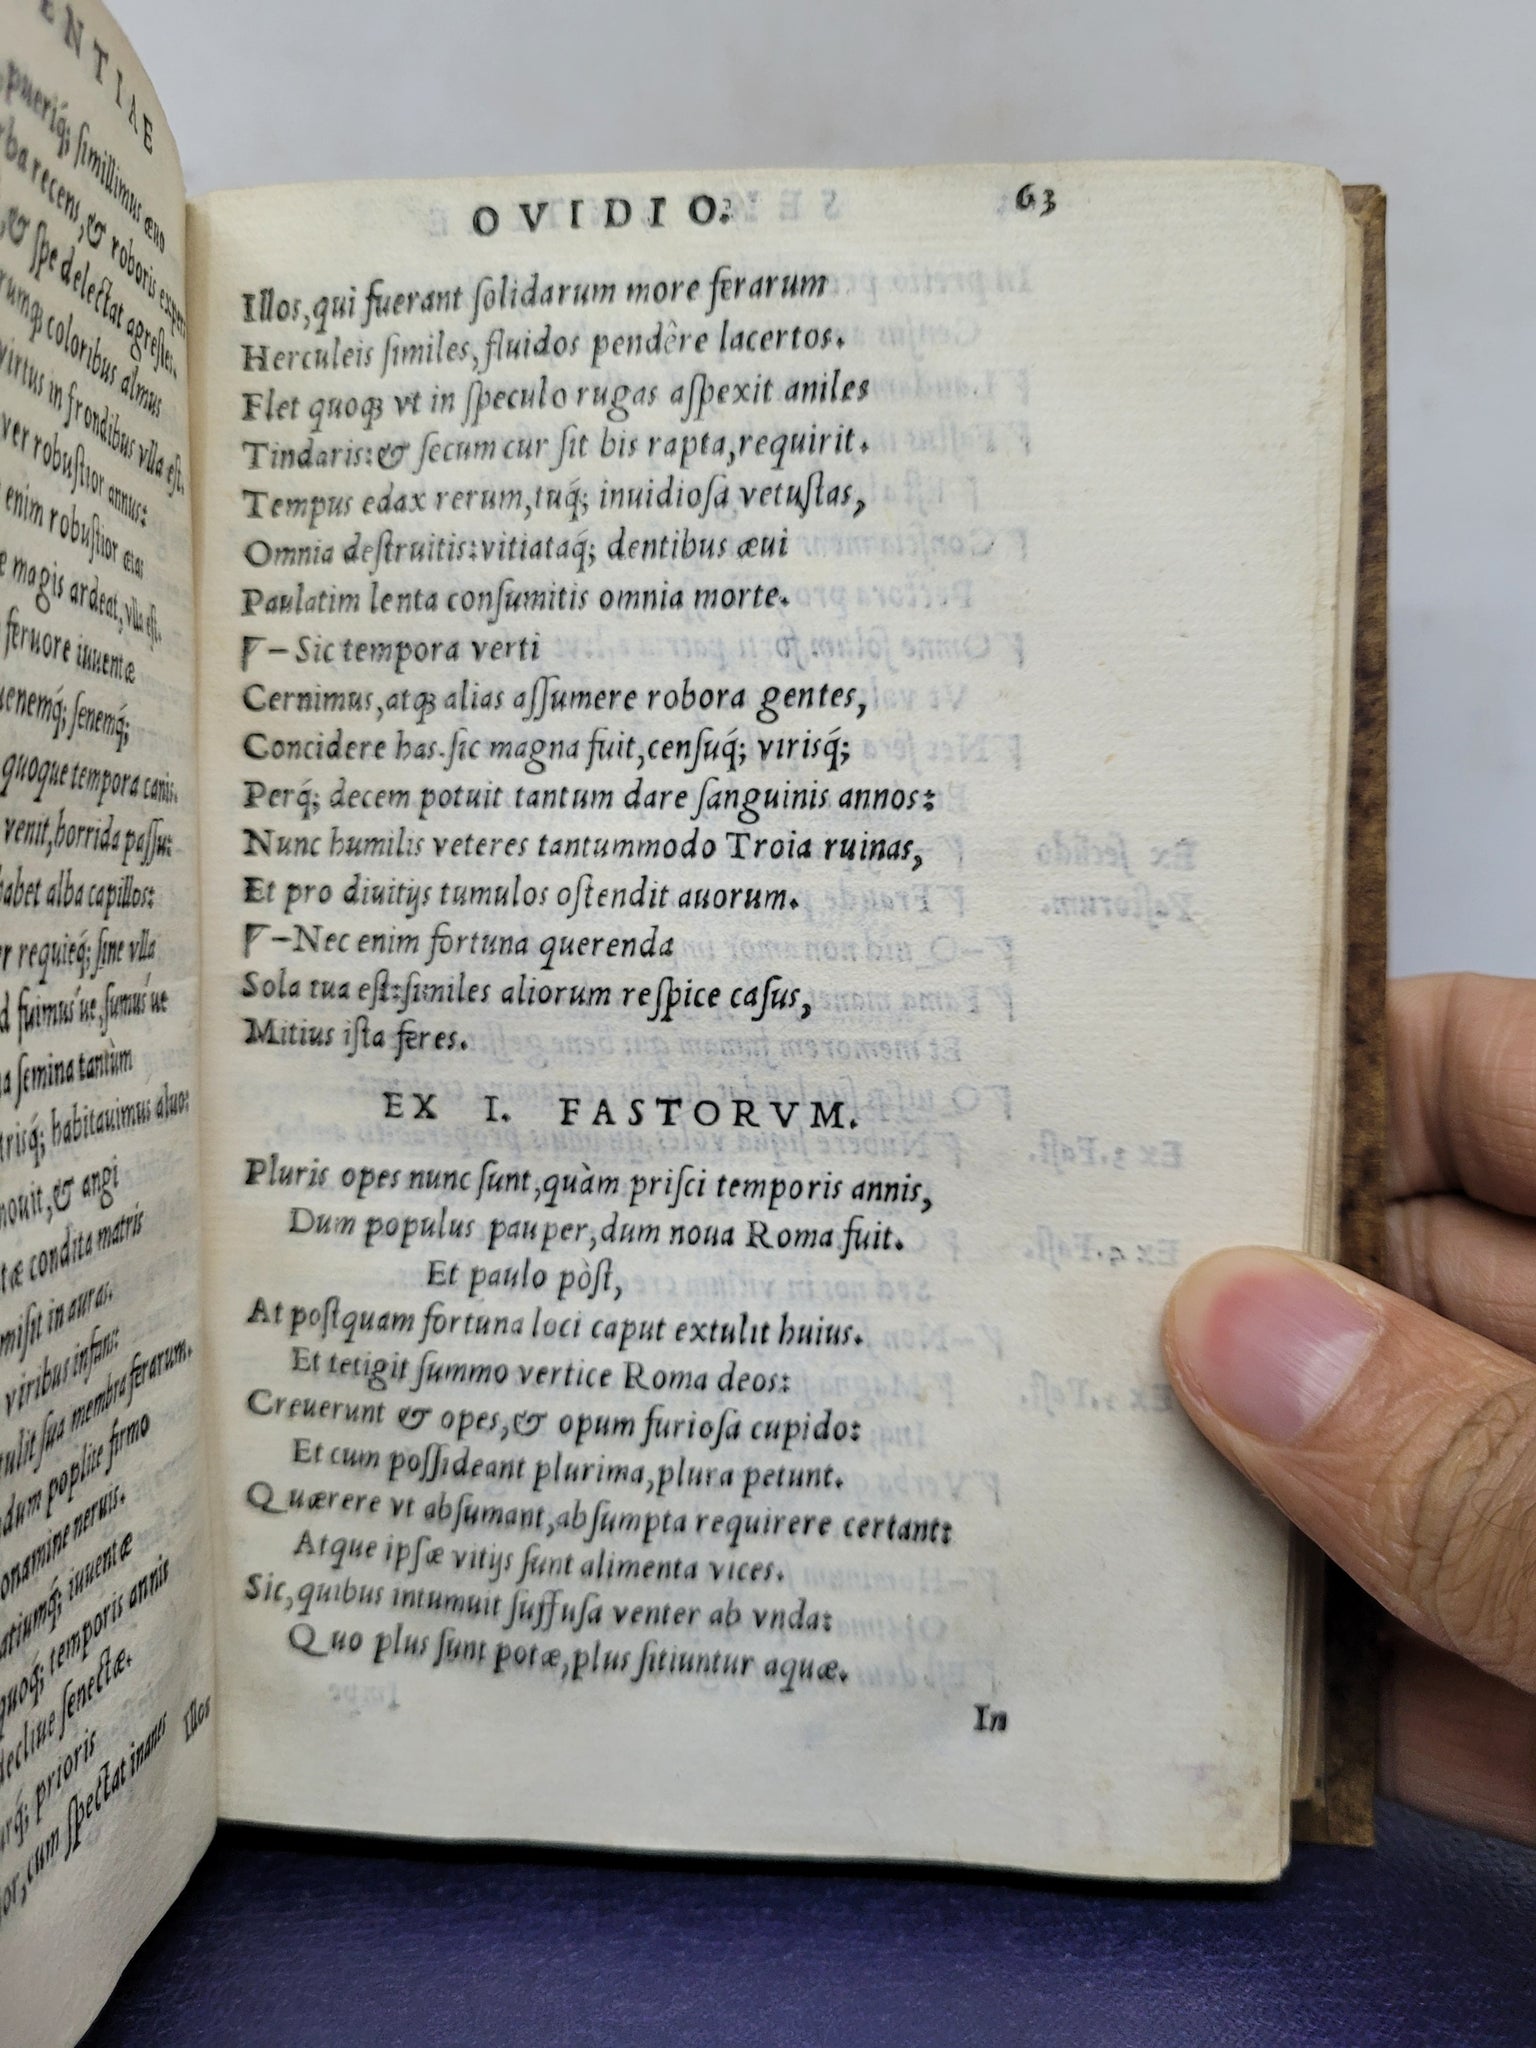 ENTIAE
pueriq́; ſimillimus æuo
recens, & roboris
& ſpe delectat agreſtes.
coloribus almus
virtus in frondibus vlla eſt.
ver robuſtior annus:
enim robuſtior ætas
magis ardeat, vlla eſt.
feruore iuuentæ
ſenemq́;
quoque tempora canis.
venit, horrida paſſu:
habet alba capillos:
requieq́; ſine vlla
fuimus'ue, ſumus'ue
ſemina tantùm
habitauimus aluo:
& angi
condita matris
miſit in auras.
viribus infans:
tulit ſua membra ferarum.
poplite firmo
conamine neruis.
iuuentæ
quoq́; temporis annis
decliue ſenectæ.
prioris
cum ſpectat inanes
Illos
OVIDIO. 63
Illos, qui fuerant ſolidarum more ferarum
Herculeis ſimiles, fluidos pendêre lacertos.
Flet quoqꝫ vt in ſpeculo rugas aſpexit aniles
Tindaris: & ſecum cur ſit bis rapta, requirit.
Tempus edax rerum, tuq́; inuidioſa vetuſtas,
Omnia deſtruitis: vitiataq́; dentibus æui
Paulatim lenta conſumitis omnia morte.
– Sic tempora verti
Cernimus, atqꝫ alias aſſumere robora gentes,
Concidere has. ſic magna fuit, cenſuq́; virisq́;
Perq́; decem potuit tantum dare ſanguinis annos:
Nunc humilis veteres tantummodo Troia ruinas,
Et pro diuitijs tumulos oſtendit auorum.
– Nec enim fortuna querenda
Sola tua eſt: ſimiles aliorum reſpice caſus,
Mitius iſta feres.
EX I. FASTORVM.
Pluris opes nunc ſunt, quàm priſci temporis annis,
Dum populus pauper, dum noua Roma fuit.
Et paulo pòſt,
At poſtquam fortuna loci caput extulit huius.
Et tetigit ſummo vertice Roma deos:
Creuerunt & opes, & opum furioſa cupido:
Et cum poſſideant plurima, plura petunt.
Quærere vt abſumant, abſumpta requirere certant:
Atque ipſæ vitijs ſunt alimenta vices.
Sic, quibus intumuit ſuffuſa venter ab vnda:
Quo plus ſunt potæ, plus ſitiuntur aquæ.
In